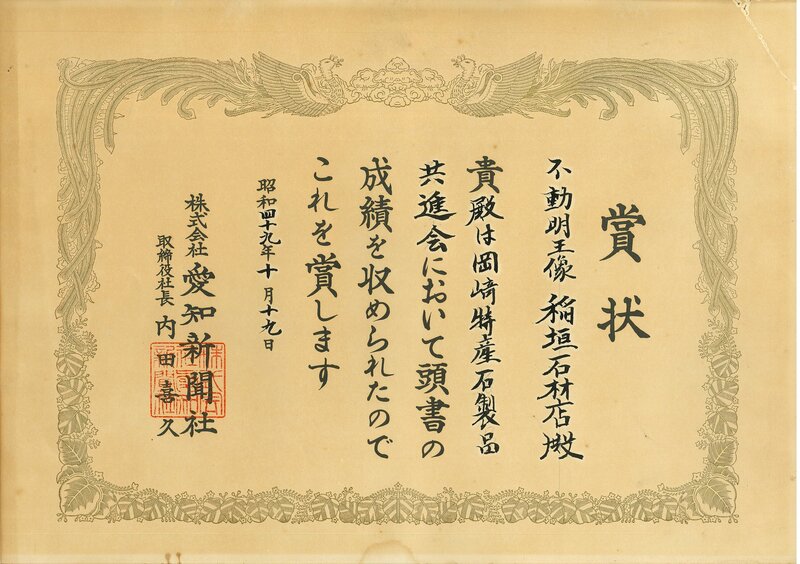 賞状
不動明王像 稲垣石材店殿
貴殿は岡崎特産石製品
共進会において頭書の
成績を収められたので
これを賞します
昭和四十九年十月十九日
株式会社 愛知新聞社
取締役社長 内田喜久